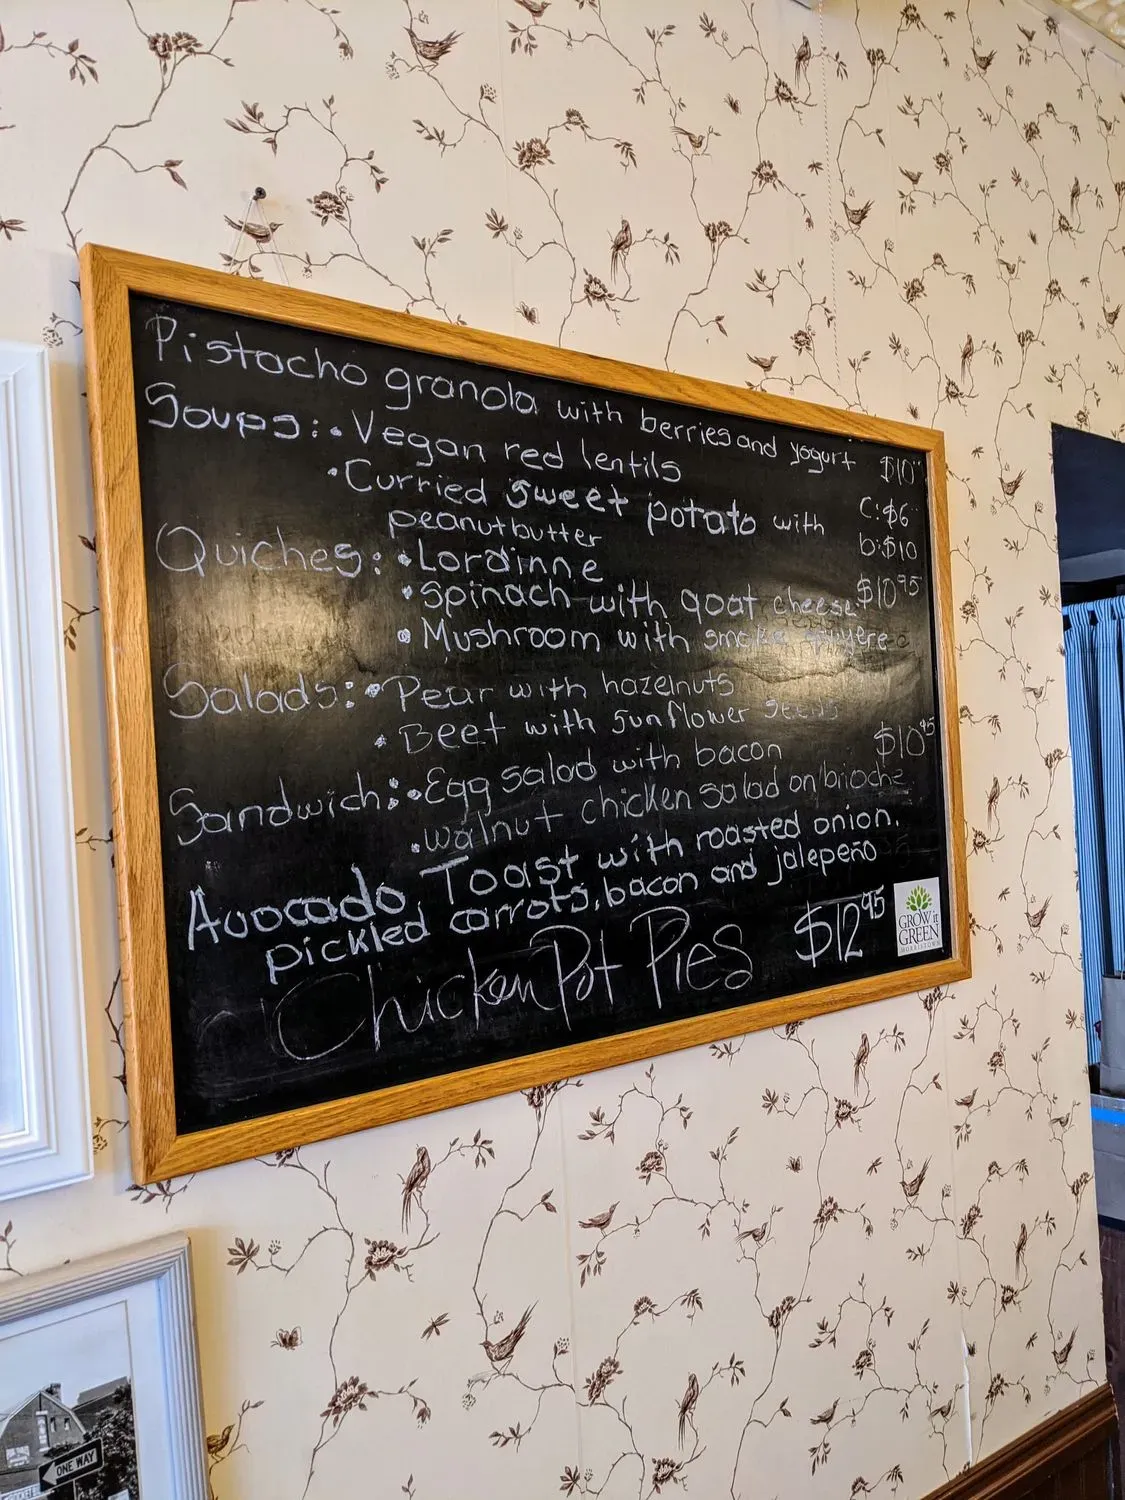 Pistacho granola with berries and yogurt $10
Soups: • Vegan red lentils
• Curried sweet potato with C: $6
peanut butter b: $10
Quiches: • Lordinne
• Spinach with goat cheese $10 95
• Mushroom with smoke gruyere
Salads: • Pear with hazelnuts
• Beet with sunflower seeds
Sandwich: • Egg salad with bacon $10 95
• walnut chicken salad on brioche
Avocado Toast with roasted onion,
pickled carrots, bacon and jalepeño
Chicken Pot Pies $12 95
GROW it
GREEN
MORRISTOWN
ONE WAY